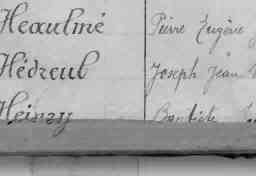 Heaulmé Pierre Eugène
Hédreul Joseph Jean
Heinry Baptiste